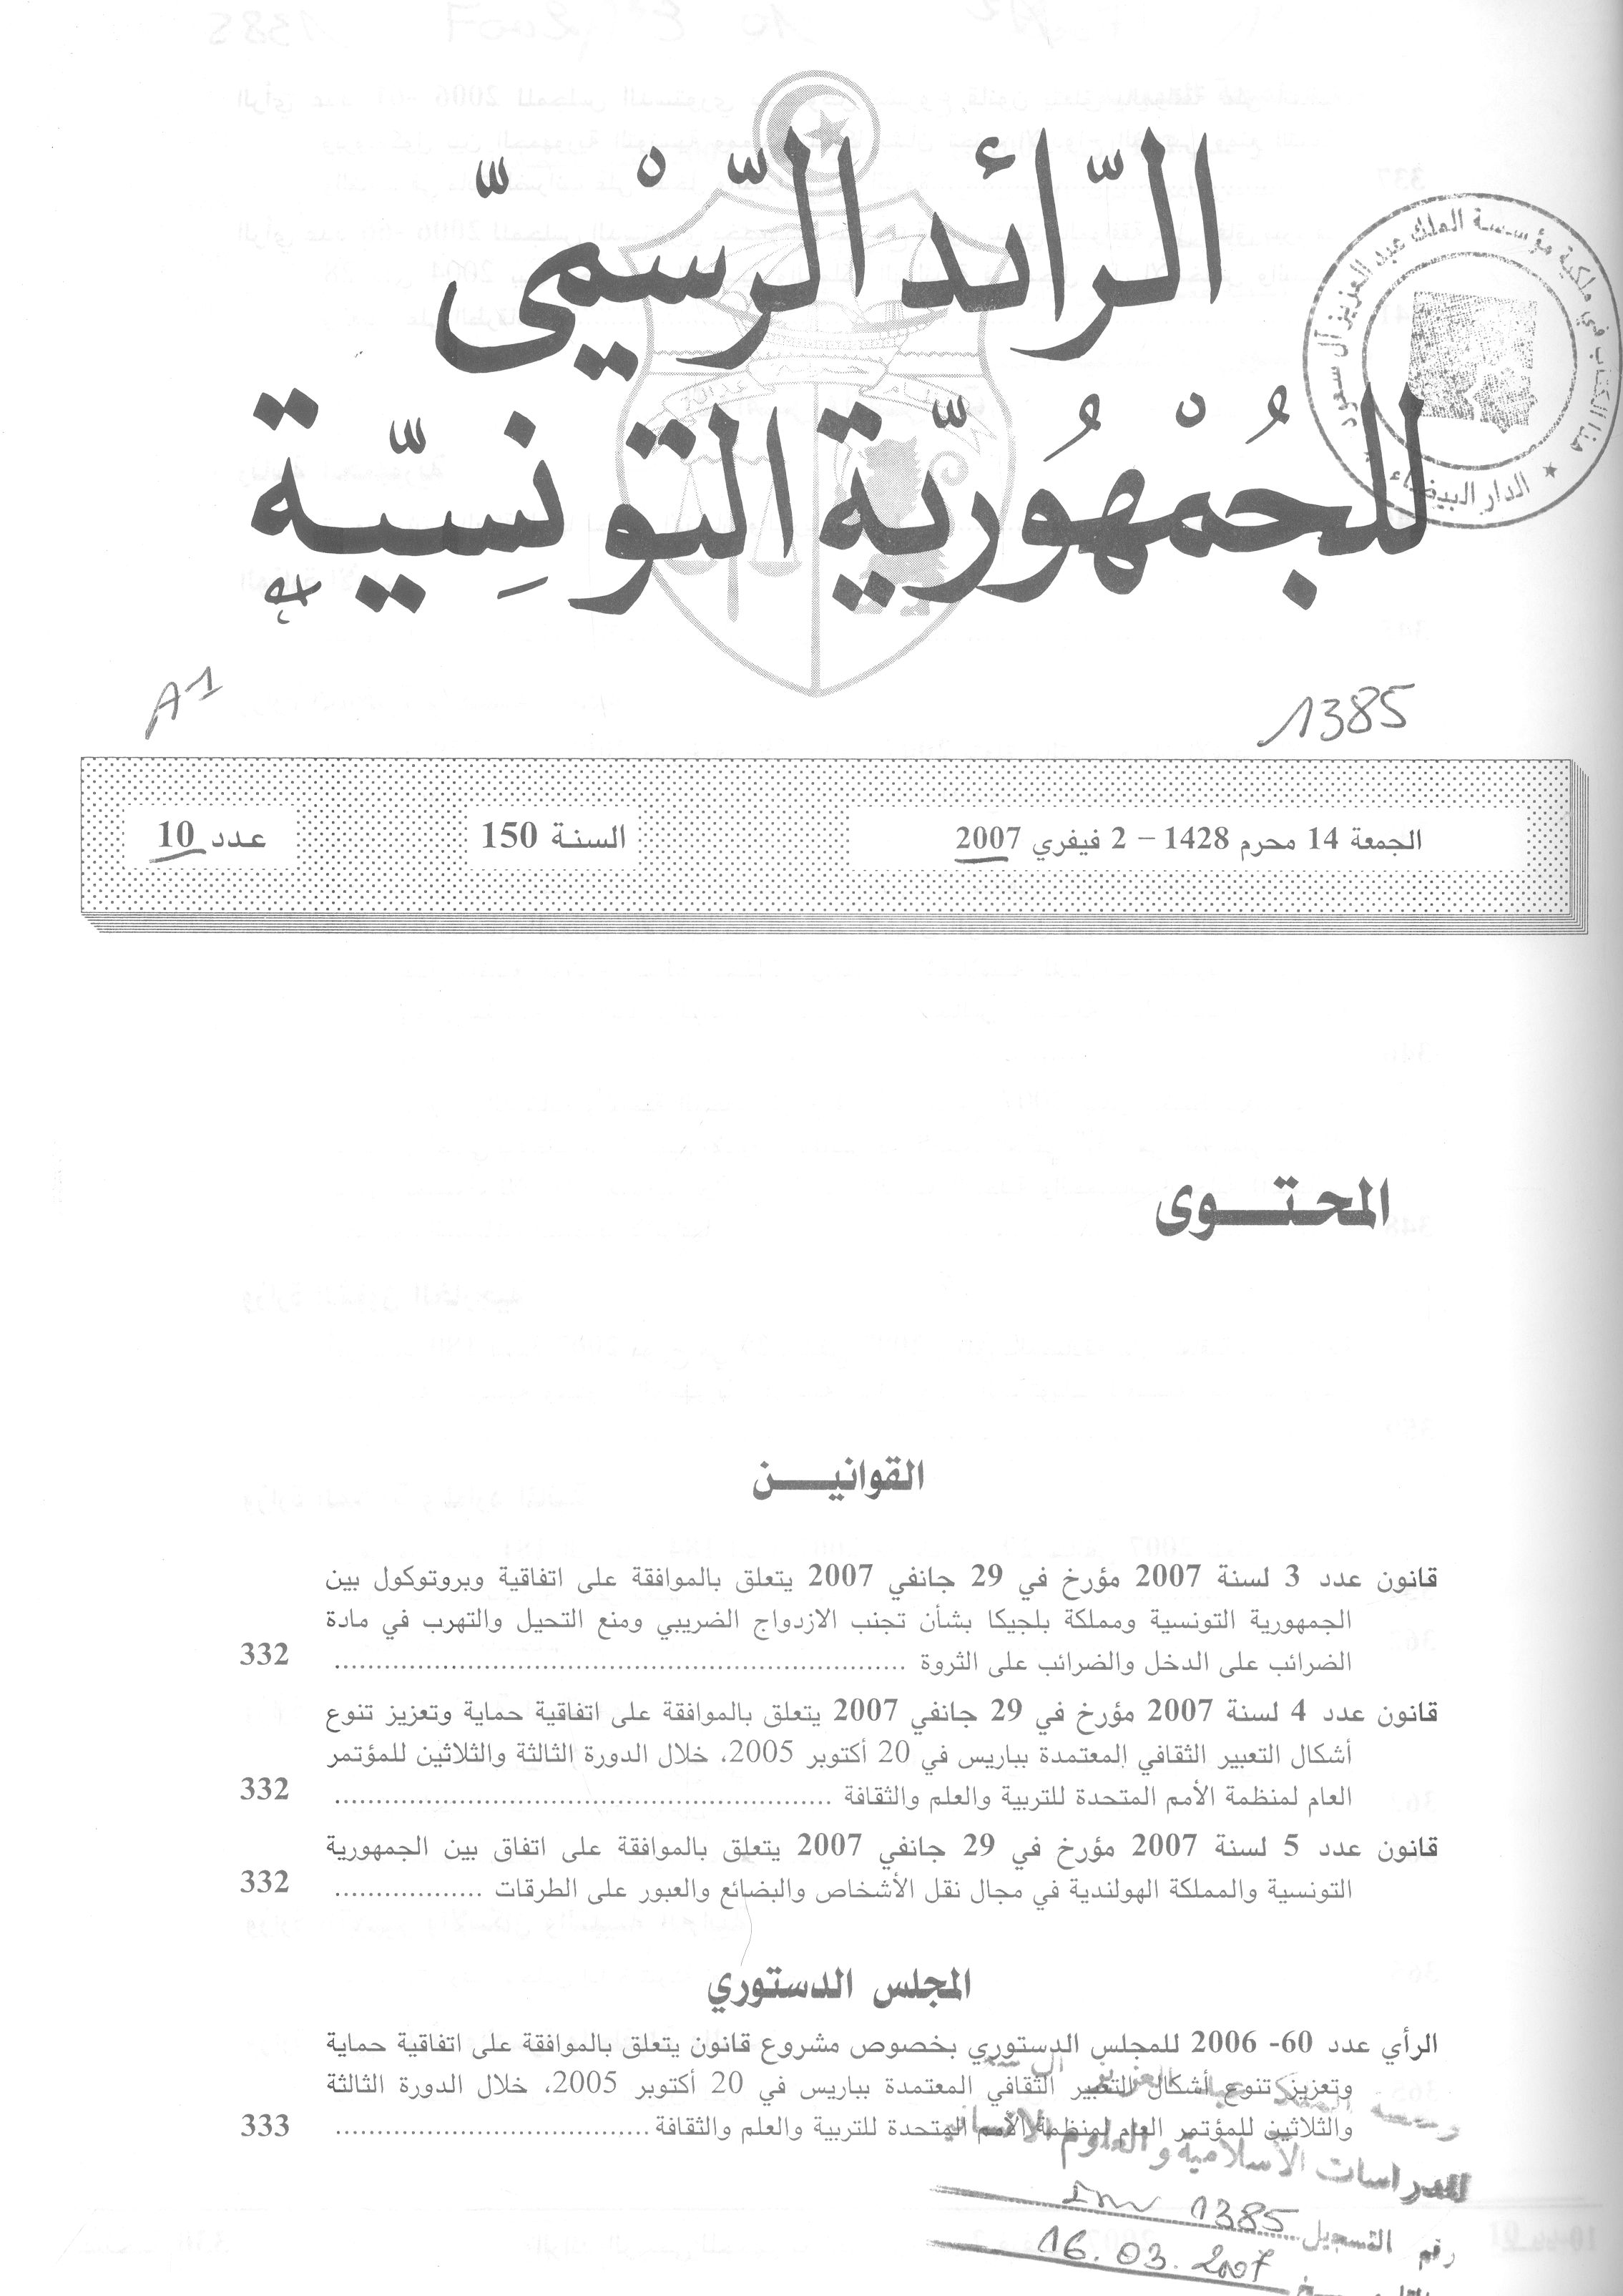 الرّائد الرّسْميّ
للجُمْهُوريّة التونِسيّة
هذا الكتاب في ملكية مؤسسة الملك عبد العزيز آل سعود
★ الدار البيضاء ★
A1
1385
الجمعة 14 محرم 1428 – 2 فيفري 2007
السنة 150
عدد 10
المحتوى
القوانين
قانون عدد 3 لسنة 2007 مؤرخ في 29 جانفي 2007 يتعلق بالموافقة على اتفاقية وبروتوكول بين
الجمهورية التونسية ومملكة بلجيكا بشأن تجنب الازدواج الضريبي ومنع التحيل والتهرب في مادة
الضرائب على الدخل والضرائب على الثروة .......... 332
قانون عدد 4 لسنة 2007 مؤرخ في 29 جانفي 2007 يتعلق بالموافقة على اتفاقية حماية وتعزيز تنوع
أشكال التعبير الثقافي المعتمدة بباريس في 20 أكتوبر 2005، خلال الدورة الثالثة والثلاثين للمؤتمر
العام لمنظمة الأمم المتحدة للتربية والعلم والثقافة .......... 332
قانون عدد 5 لسنة 2007 مؤرخ في 29 جانفي 2007 يتعلق بالموافقة على اتفاق بين الجمهورية
التونسية والمملكة الهولندية في مجال نقل الأشخاص والبضائع والعبور على الطرقات .......... 332
المجلس الدستوري
الرأي عدد 60- 2006 للمجلس الدستوري بخصوص مشروع قانون يتعلق بالموافقة على اتفاقية حماية
وتعزيز تنوع أشكال التعبير الثقافي المعتمدة بباريس في 20 أكتوبر 2005، خلال الدورة الثالثة
والثلاثين للمؤتمر العام لمنظمة الأمم المتحدة للتربية والعلم والثقافة .......... 333
للدراسات الأسلامية والعلوم الانسانية
رقم التسجيل Inv 1385
16.03.2007